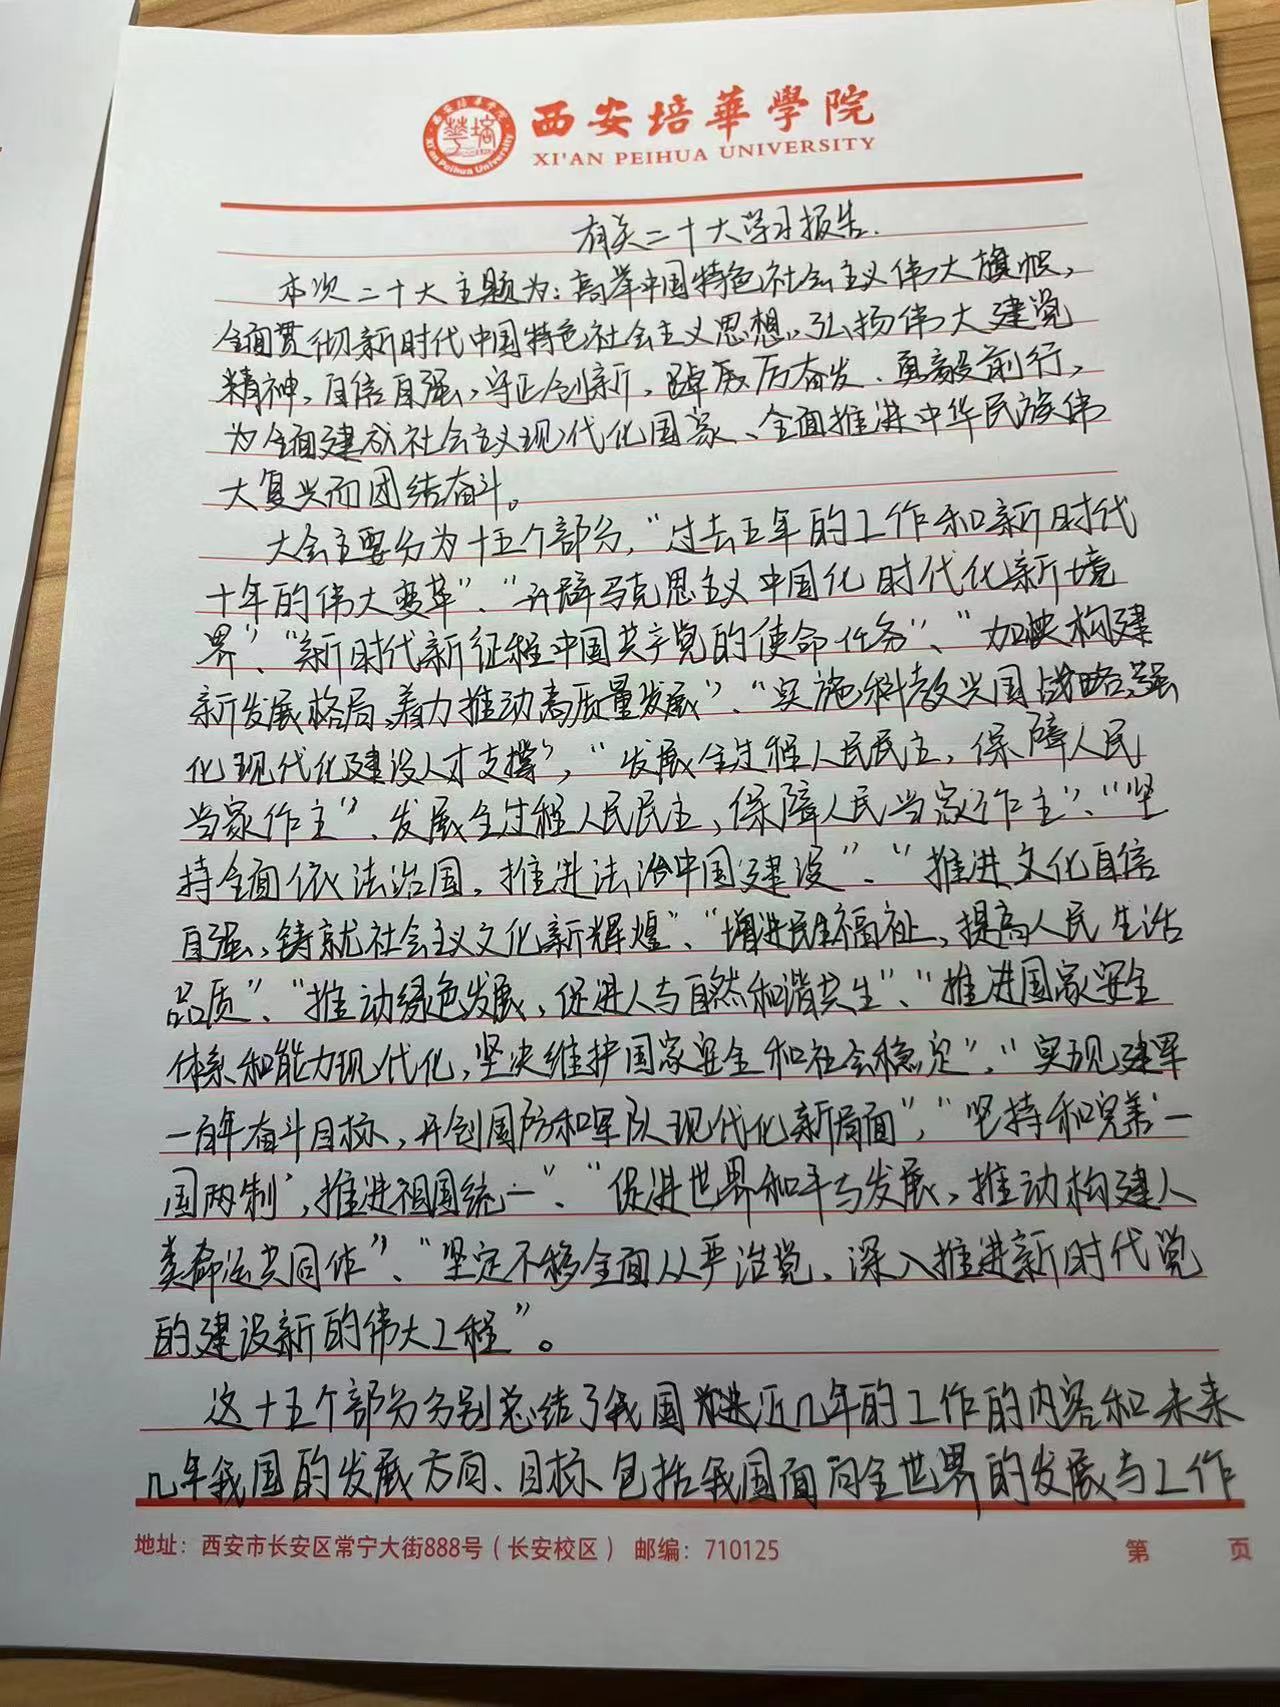 西安培華學院
XI'AN PEIHUA UNIVERSITY
有关二十大学习报告.
本次二十大主题为：高举中国特色社会主义伟大旗帜，
全面贯彻新时代中国特色社会主义思想，弘扬伟大建党
精神，自信自强、守正创新，踔厉厉奋发、勇毅前行，
为全面建成社会主义现代化国家、全面推进中华民族伟
大复兴而团结奋斗。
大会主要分为十五个部分，“过去五年的工作和新时代
十年的伟大变革”、“开辟马克思主义中国化时代化新境
界”、“新时代新征程中国共产党的使命任务”、“加快构建
新发展格局，着力推动高质量发展”、“实施科教兴国战略，强
化现代化建设人才支撑”，“发展全过程人民民主，保障人民
当家作主”、发展全过程人民民主，保障人民当家作主”、“坚
持全面依法治国，推进法治中国建设”、“推进文化自信
自强，铸就社会主义文化新辉煌”、“增进民生福祉，提高人民生活
品质”、“推动绿色发展，促进人与自然和谐共生”、“推进国家安全
体系和能力现代化，坚决维护国家安全和社会稳定”，“实现建军
一百年奋斗目标，开创国防和军队现代化新局面”，“坚持和完善‘一
国两制’，推进祖国统一”、“促进世界和平与发展，推动构建人
类命运共同体”、“坚定不移全面从严治党，深入推进新时代党
的建设新的伟大工程”。
这十五个部分分别总结了我国 近几年的工作的内容和未来
几年我国的发展方向、目标、包括我国面向全世界的发展与工作
地址：西安市长安区常宁大街888号（长安校区） 邮编：710125
第 页